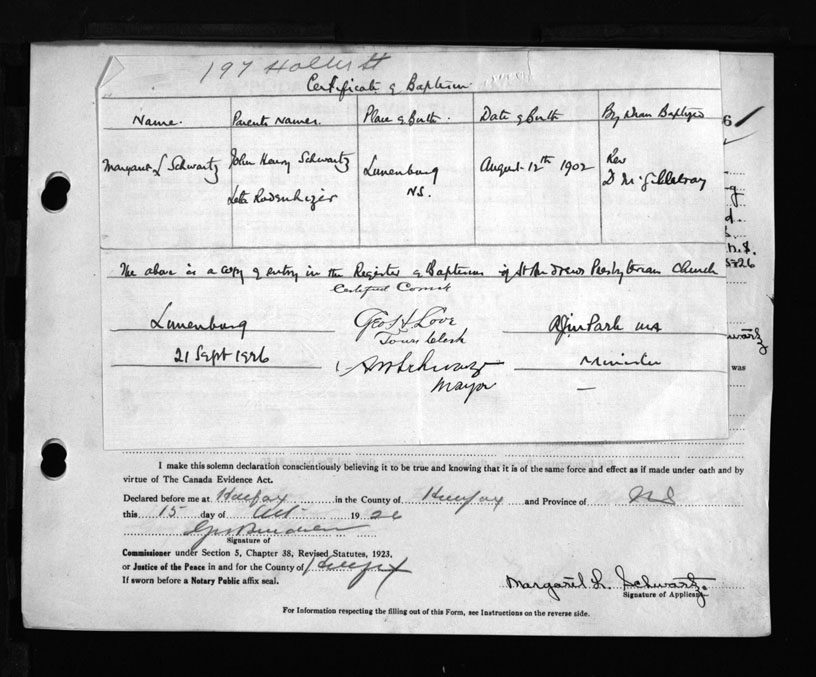 197 Hollis St
Certificate of Baptism
Name. Parents Names. Place of Birth. Date of Birth By Whom Baptized
Margaret L Schwartz John Henry Schwartz Lunenburg August 12th 1902 Rev
Leta Rodenhizer N.S. D McGillivray
The above is a copy of entry in the Register of Baptisms of St Andrews Presbyterian Church
Certified Correct
Lunenburg Geo H Love Park MA
Town Clerk
21 Sept 1926 A W Schwartz Minister
Mayor
6
N.S.
1926
wartz
was
I make this solemn declaration conscientiously believing it to be true and knowing that it is of the same force and effect as if made under oath and by
virtue of The Canada Evidence Act.
Declared before me at Halifax in the County of Halifax and Province of N S
this 15 day of Oct 1926
Signature of
Commissioner under Section 5, Chapter 38, Revised Statutes, 1923,
or Justice of the Peace in and for the County of Halifax
If sworn before a Notary Public affix seal.
Margaret L. Schwartz.
Signature of Applicant
For Information respecting the filling out of this Form, see Instructions on the reverse side.